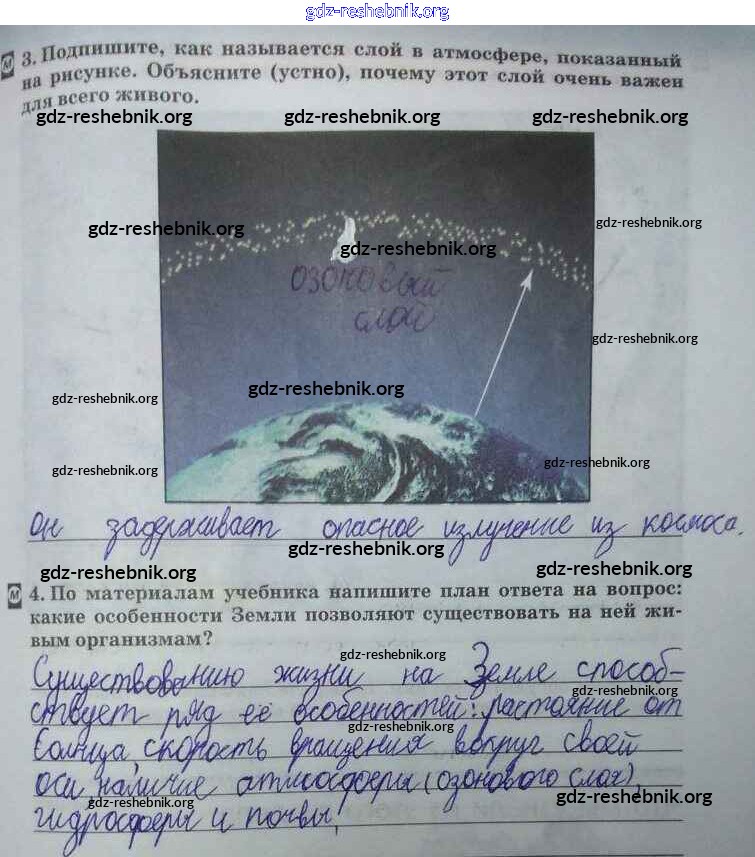 gdz-reshebnik.org
3. Подпишите, как называется слой в атмосфере, показанный
на рисунке. Объясните (устно), почему этот слой очень важен
для всего живого.
gdz-reshebnik.org gdz-reshebnik.org gdz-reshebnik.org
gdz-reshebnik.org
gdz-reshebnik.org
gdz-reshebnik.org
озоновый
слой
gdz-reshebnik.org
gdz-reshebnik.org
gdz-reshebnik.org
gdz-reshebnik.org
gdz-reshebnik.org
Он задерживает опасное излучение из космоса.
gdz-reshebnik.org
gdz-reshebnik.org gdz-reshebnik.org
4. По материалам учебника напишите план ответа на вопрос:
какие особенности Земли позволяют существовать на ней жи-
вым организмам?
gdz-reshebnik.org
Существованию жизни на Земле способ-
gdz-reshebnik.org
ствует ряд её особенностей: растояние от
gdz-reshebnik.org
Солнца, скорость вращения вокруг своей
оси, наличие атмосферы (озонового слоя),
gdz-reshebnik.org gdz-reshebnik.org
гидросферы и почвы.